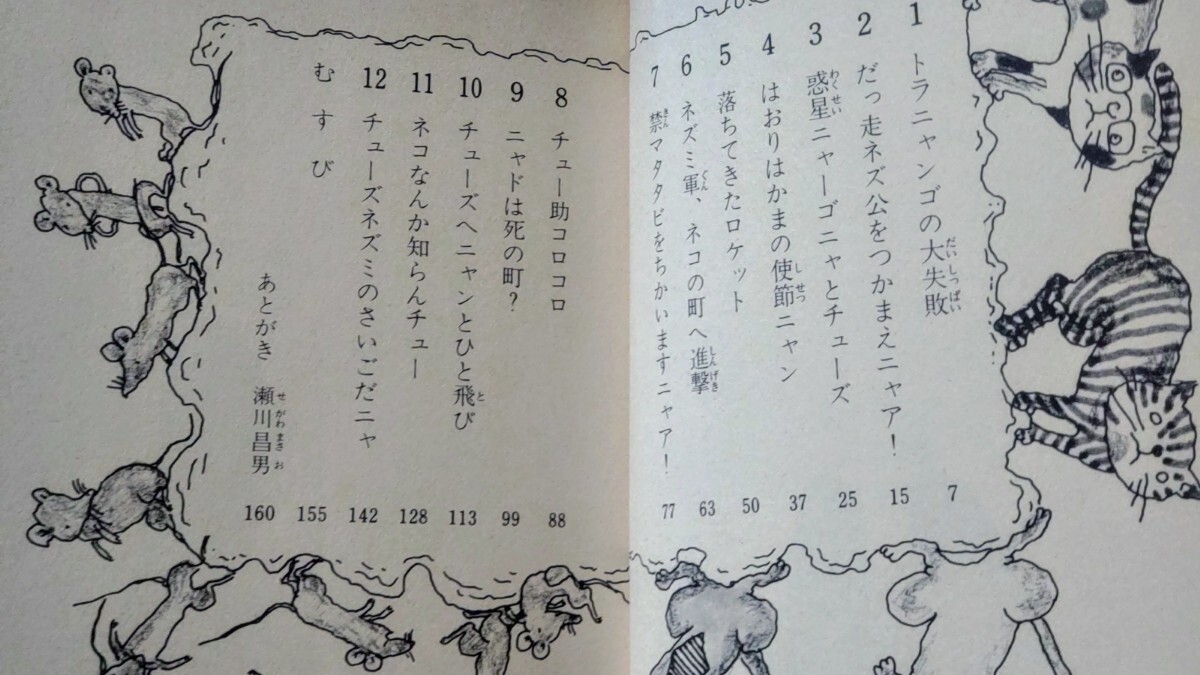 1 トラニャンゴの大失敗 7
2 だっ走ネズ公をつかまえニャア！ 15
3 惑星ニャーゴニャとチューズ 25
4 はおりはかまの使節ニャン 37
5 落ちてきたロケット 50
6 ネズミ軍、ネコの町へ進撃 63
7 禁マタタビをちかいますニャア！ 77
8 チュー助コロコロ 88
9 ニャドは死の町？ 99
10 チューズへニャンとひと飛び 113
11 ネコなんか知らんチュー 128
12 チューズネズミのさいごだニャ 142
むすび 155
あとがき 瀬川昌男 160